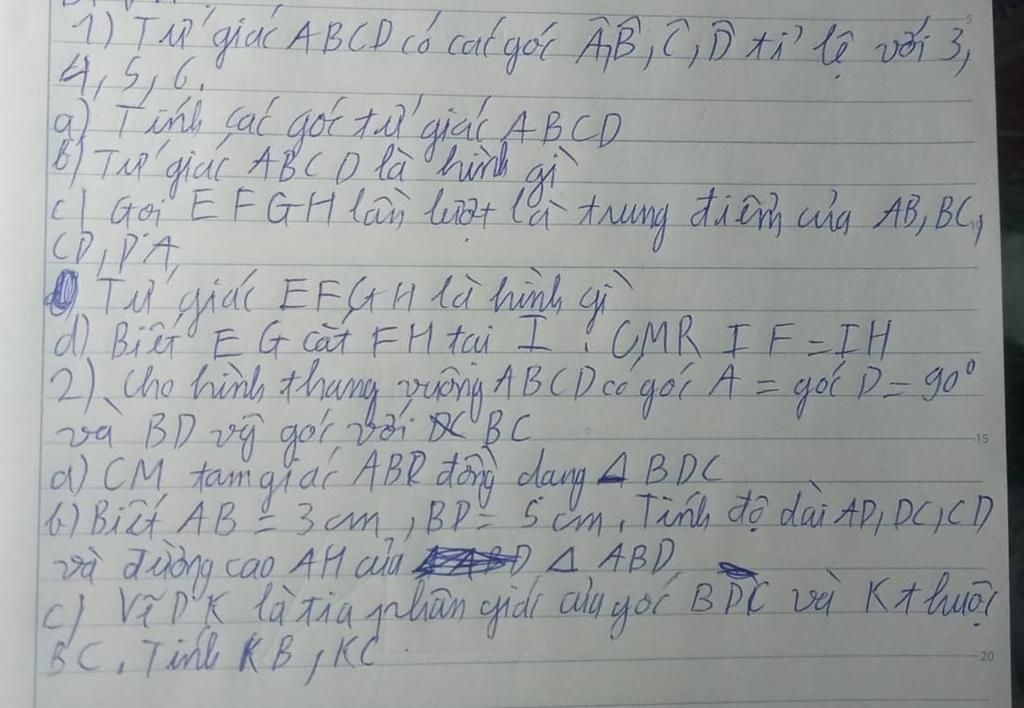 1) Tứ giác ABCD có các góc Â, B̂, Ĉ, D̂ tỉ lệ với 3,
4, 5, 6.
a) Tính các góc tứ giác ABCD
b) Tứ giác ABCD là hình gì
c) Gọi E F G H lần lượt là trung điểm của AB, BC,
CD, DA,
Tứ giác EFGH là hình gì
d) Biết EG cắt FH tại I. CMR IF = IH
2) Cho hình thang vuông ABCD có góc A = góc D = 90°
và BD vg góc với BC
a) CM tam giác ABD đồng dang Δ BDC
b) Biết AB = 3 cm, BD = 5 cm, Tính độ dài AD, DC, CD
và đường cao AH của Δ ABD
c) Vẽ DK là tia phân giác của góc BDC và K thuộc
BC. Tính KB, KC
15
20